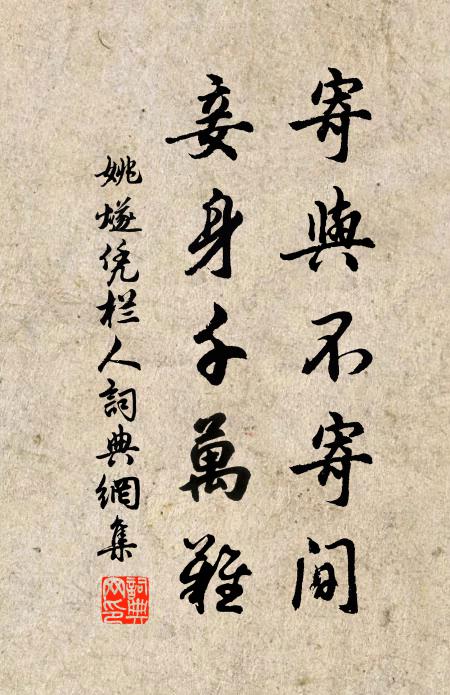 寄與不寄間
妾身千萬難
姚燧凭栏人詞典網集
詞典
網印